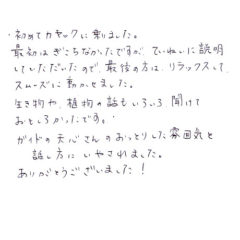 ・初めてカヤックに乗りました。
最初はぎこちなかったですが、ていねいに説明
していただいたので、最後の方は、リラックスして、
スムーズに動かせました。
生き物や、植物の話もいろいろ聞けて
おもしろかったです。
ガイドの天心さんのおっとりした雰囲気と
話し方に いやされました。
ありがとうございました!